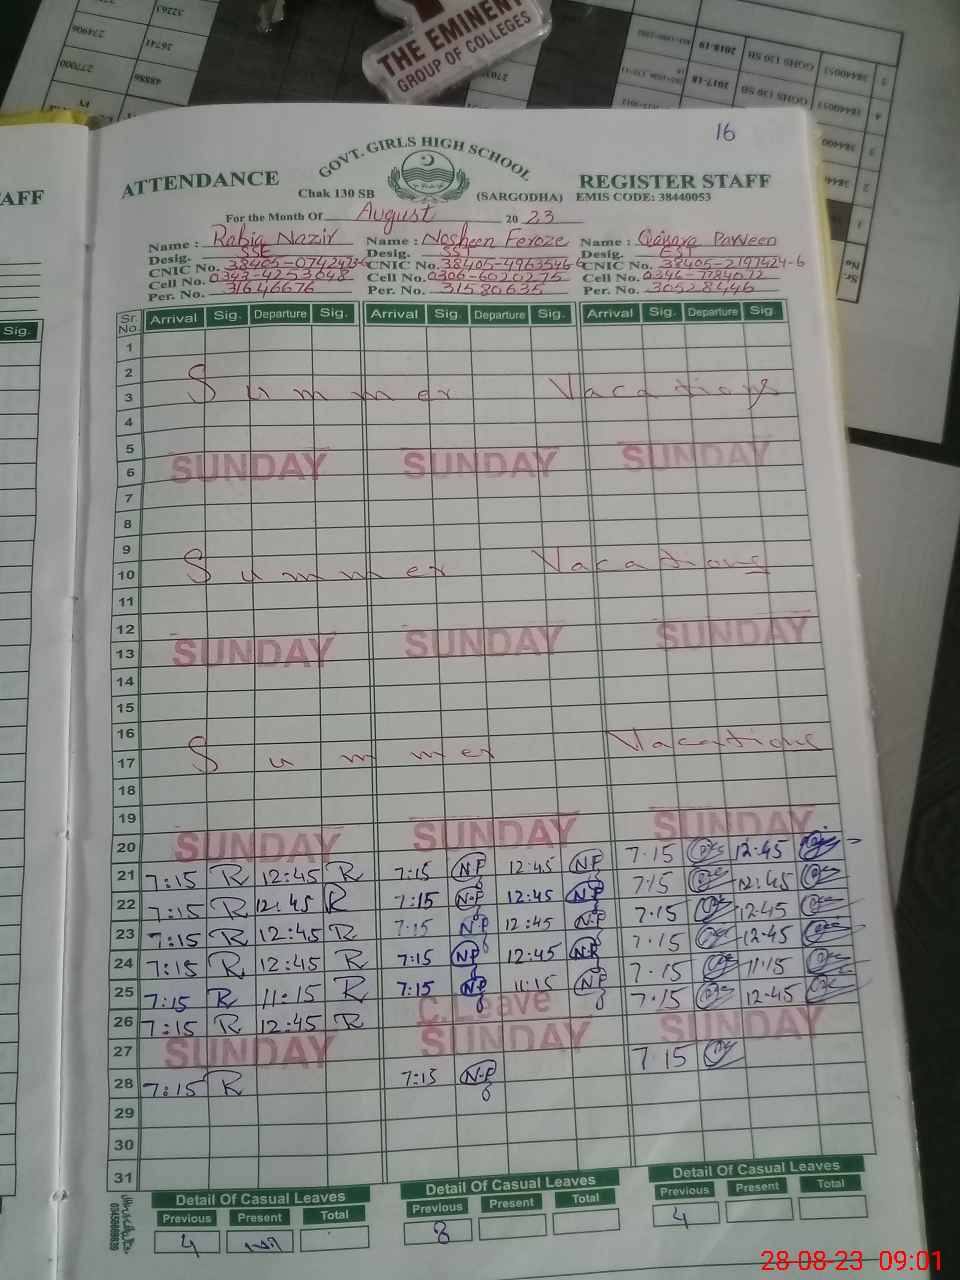 THE EMINENT
GROUP OF COLLEGES
16
GOVT. GIRLS HIGH SCHOOL
ATTENDANCE REGISTER STAFF
Chak 130 SB (SARGODHA) EMIS CODE: 38440053
For the Month Of August 20 23
Name : Rabia Nazir Name : Nosheen Feroze Name : Parveen
Desig. SSE Desig. SST Desig.
CNIC No. CNIC No. CNIC No.
Cell No. 0347-4253048 Cell No. 0306-6020275 Cell No.
Per. No. 31646676 Per. No. 31580635 Per. No. 30528446
Sr. No. Arrival Sig. Departure Sig. Arrival Sig. Departure Sig. Arrival Sig. Departure Sig.
1
2
3 Summer Vacations
4
5
6 SUNDAY SUNDAY SUNDAY
7
8
9
10 Summer Vacations
11
12
13 SUNDAY SUNDAY SUNDAY
14
15
16
17 Summer Vacations
18
19
20 SUNDAY SUNDAY SUNDAY
21 7:15 R 12:45 R 7:15 NF 12:45 NF 7.15 12.45
22 7:15 R 12:45 R 7:15 NF 12:45 NF 7.15 12.45
23 7:15 R 12:45 R 7:15 NF 12:45 NF 7.15 12.45
24 7:15 R 12:45 R 7:15 NF 12:45 NF 7.15 12.45
25 7:15 R 11:15 R 7:15 NF 11:15 NF 7.15 11.15
26 7:15 R 12:45 R C.Leave 7.15 12.45
27 SUNDAY SUNDAY SUNDAY
28 7:15 R 7:15 NF 7.15
29
30
31
Detail Of Casual Leaves Detail Of Casual Leaves Detail Of Casual Leaves
Previous Present Total Previous Present Total Previous Present Total
4 8 4
AFF
Sig.
28-08-23 09:01